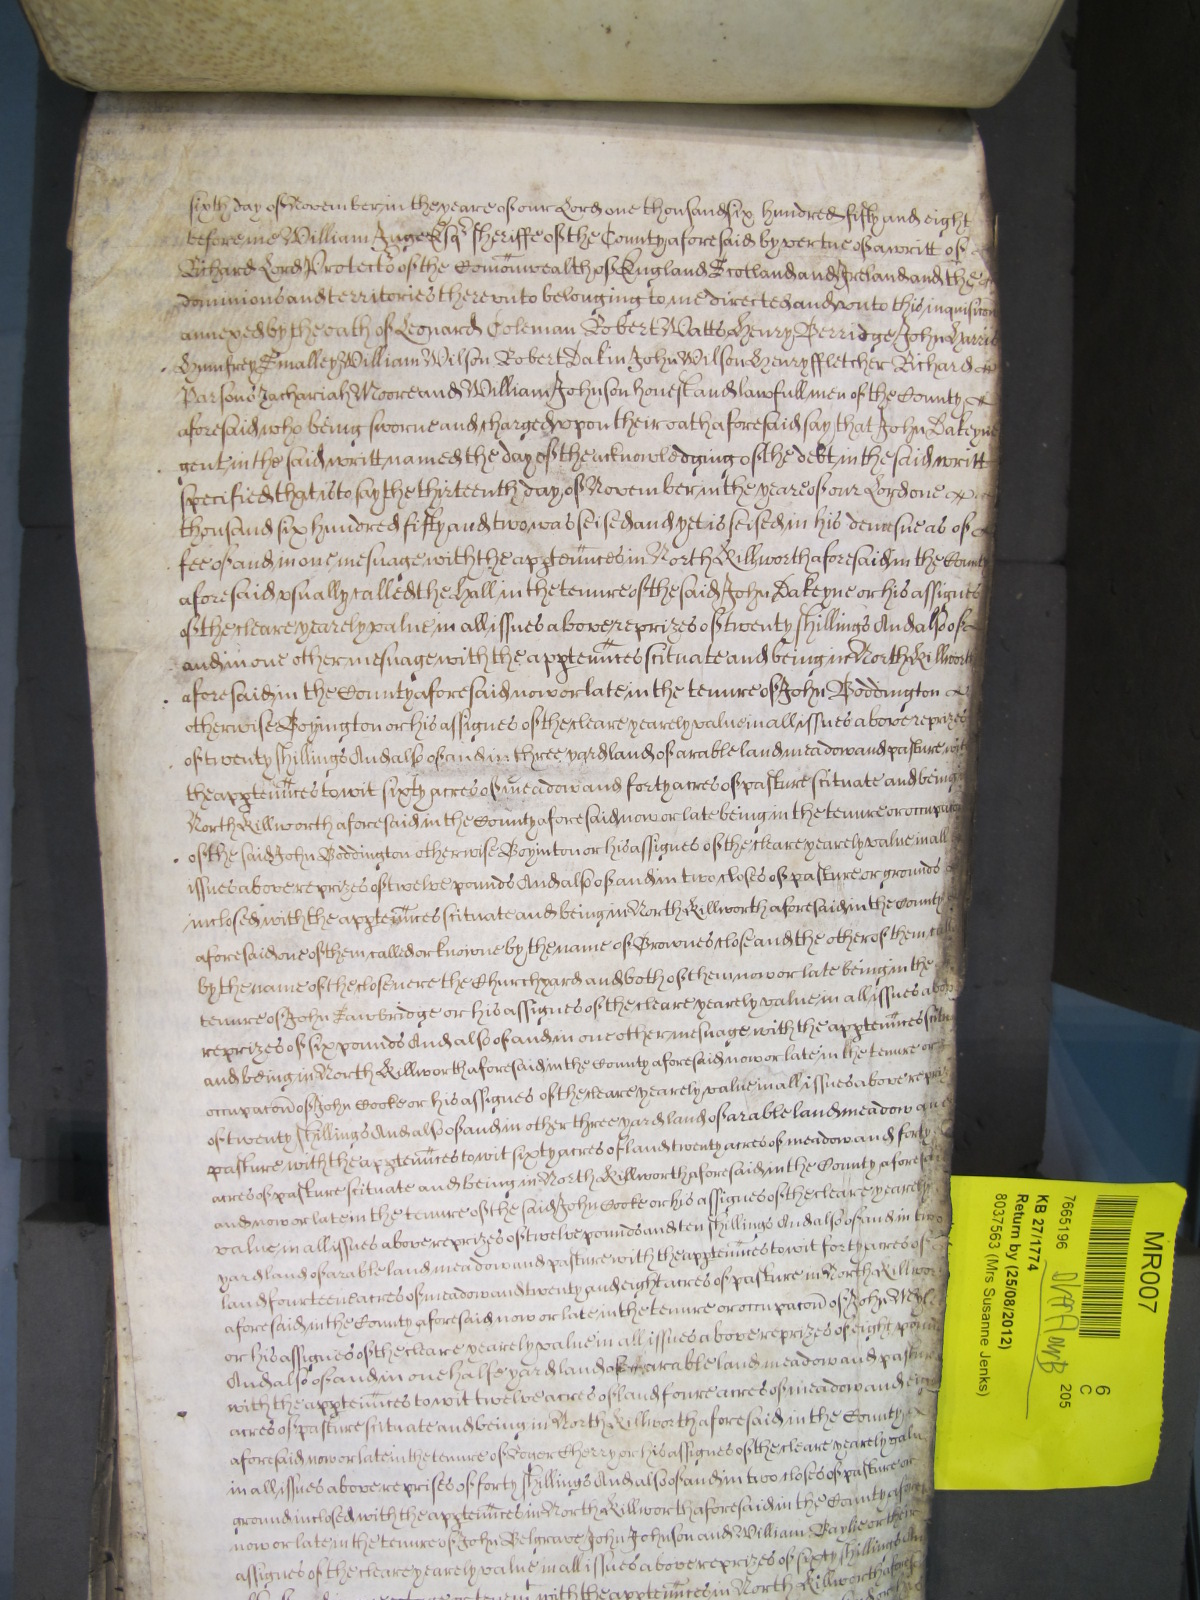 sixth day of November in the yeare of our Lord one thousand six hundred fifty and eight
before me William Inge Esqr Sheriffe of the County aforesaid by vertue of a writt of
Richard Lord Protector of the Comonwealth of England Scotland and Ireland and the
dominions and territories thereunto belonging to me directed and unto this inquisicon
annexed by the oath of Leonard Coleman Robert Watts Henry Berridge John Harris
Humfrey Smalley William Wilson Robert Dakin John Wilson Henry ffletcher Richard
Parsons Zachariah Moore and William Johnson honest and lawfull men of the County
aforesaid who being sworne and charged upon their oath aforesaid say that John Dakeyne
gent in the said writt named the day of the acknowledging of the debt in the said writt
specified that is to say the thirteenth day of November in the yeare of our Lord one
thousand six hundred fifty and two was seised and yet is seised in his demesne as of
fee of and in one mesuage with the apptennces in North Killworth aforesaid in the County
aforesaid usually called the Hall in the tenure of the said John Dakeyne or his assignes
of the cleare yearely value in all issues above reprizes of twenty shillings And also of
and in one other mesuage with the apptennces scituate and being in North Killworth
aforesaid in the County aforesaid now or late in the tenure of John Boddington
otherwise Boyington or his assignes of the cleare yearely value in all issues above reprizes
of twenty shillings And also of and in three yard land of arable land meadow and pasture with
the apptennces to wit sixty acres of meadow and forty acres of pasture scituate and being
North Killworth aforesaid in the County aforesaid now or late being in the tenure or occupacon
of the said John Boddington otherwise Boyinton or his assignes of the cleare yearely value in all
issues above reprizes of twelve pounds And also of and in two closes of pasture or grounds
inclosed with the apptennces scituate and being in North Killworth aforesaid in the County
aforesaid one of them called or knowne by the name of Brownes close and the other of them
by the name of the close nere the Churchyard and both of them now or late being in the
tenure of John Sawbridge or his assignes of the cleare yearely value in all issues above
reprizes of six pounds And also of and in one other mesuage with the apptennces
and being in North Killworth aforesaid in the County aforesaid now or late in the tenure or
occupacon of John Cooke or his assignes of the cleare yearely value in all issues above reprizes
of twenty shillings And also of and in other three yard land of arable land meadow and
pasture with the apptennces to wit sixty acres of land twenty acres of meadow and forty
acres of pasture scituate and being in North Killworth aforesaid in the County aforesaid
and now or late in the tenure of the said John Cooke or his assignes of the cleare yearely
value in all issues above reprizes of twelve pounds and ten shillings And also of and in two
yard land of arable land meadow and pasture with the apptennces to wit forty acres of
land fourteene acres of meadow and twenty and eight acres of pasture in North Killworth
aforesaid in the County aforesaid now or late in the tenure or occupacon of John
or his assignes of the cleare yearely value in all issues above reprizes of eight pounds
And also of and in one halfe yard land of arable land meadow and pasture
with the apptennces to wit twelve acres of land foure acres of meadow and eight
acres of pasture scituate and being in North Killworth aforesaid in the County
aforesaid now or late in the tenure of Roger Cherry or his assignes of the cleare yearely value
in all issues above reprises of forty shillings And also of and in two closes of pasture or
ground inclosed with the apptennces in North Killworth aforesaid in the County
now or late in the tenure of John Belgrave John Johnson and William Baylie or their
assignes of the cleare yearely value in all issues above reprizes of sixty shillings
with the apptennces in North Killworth
MR007
6
C
205
7665196
KB 27/1774
Return by (25/08/2012)
8037563 (Mrs Susanne Jenks)